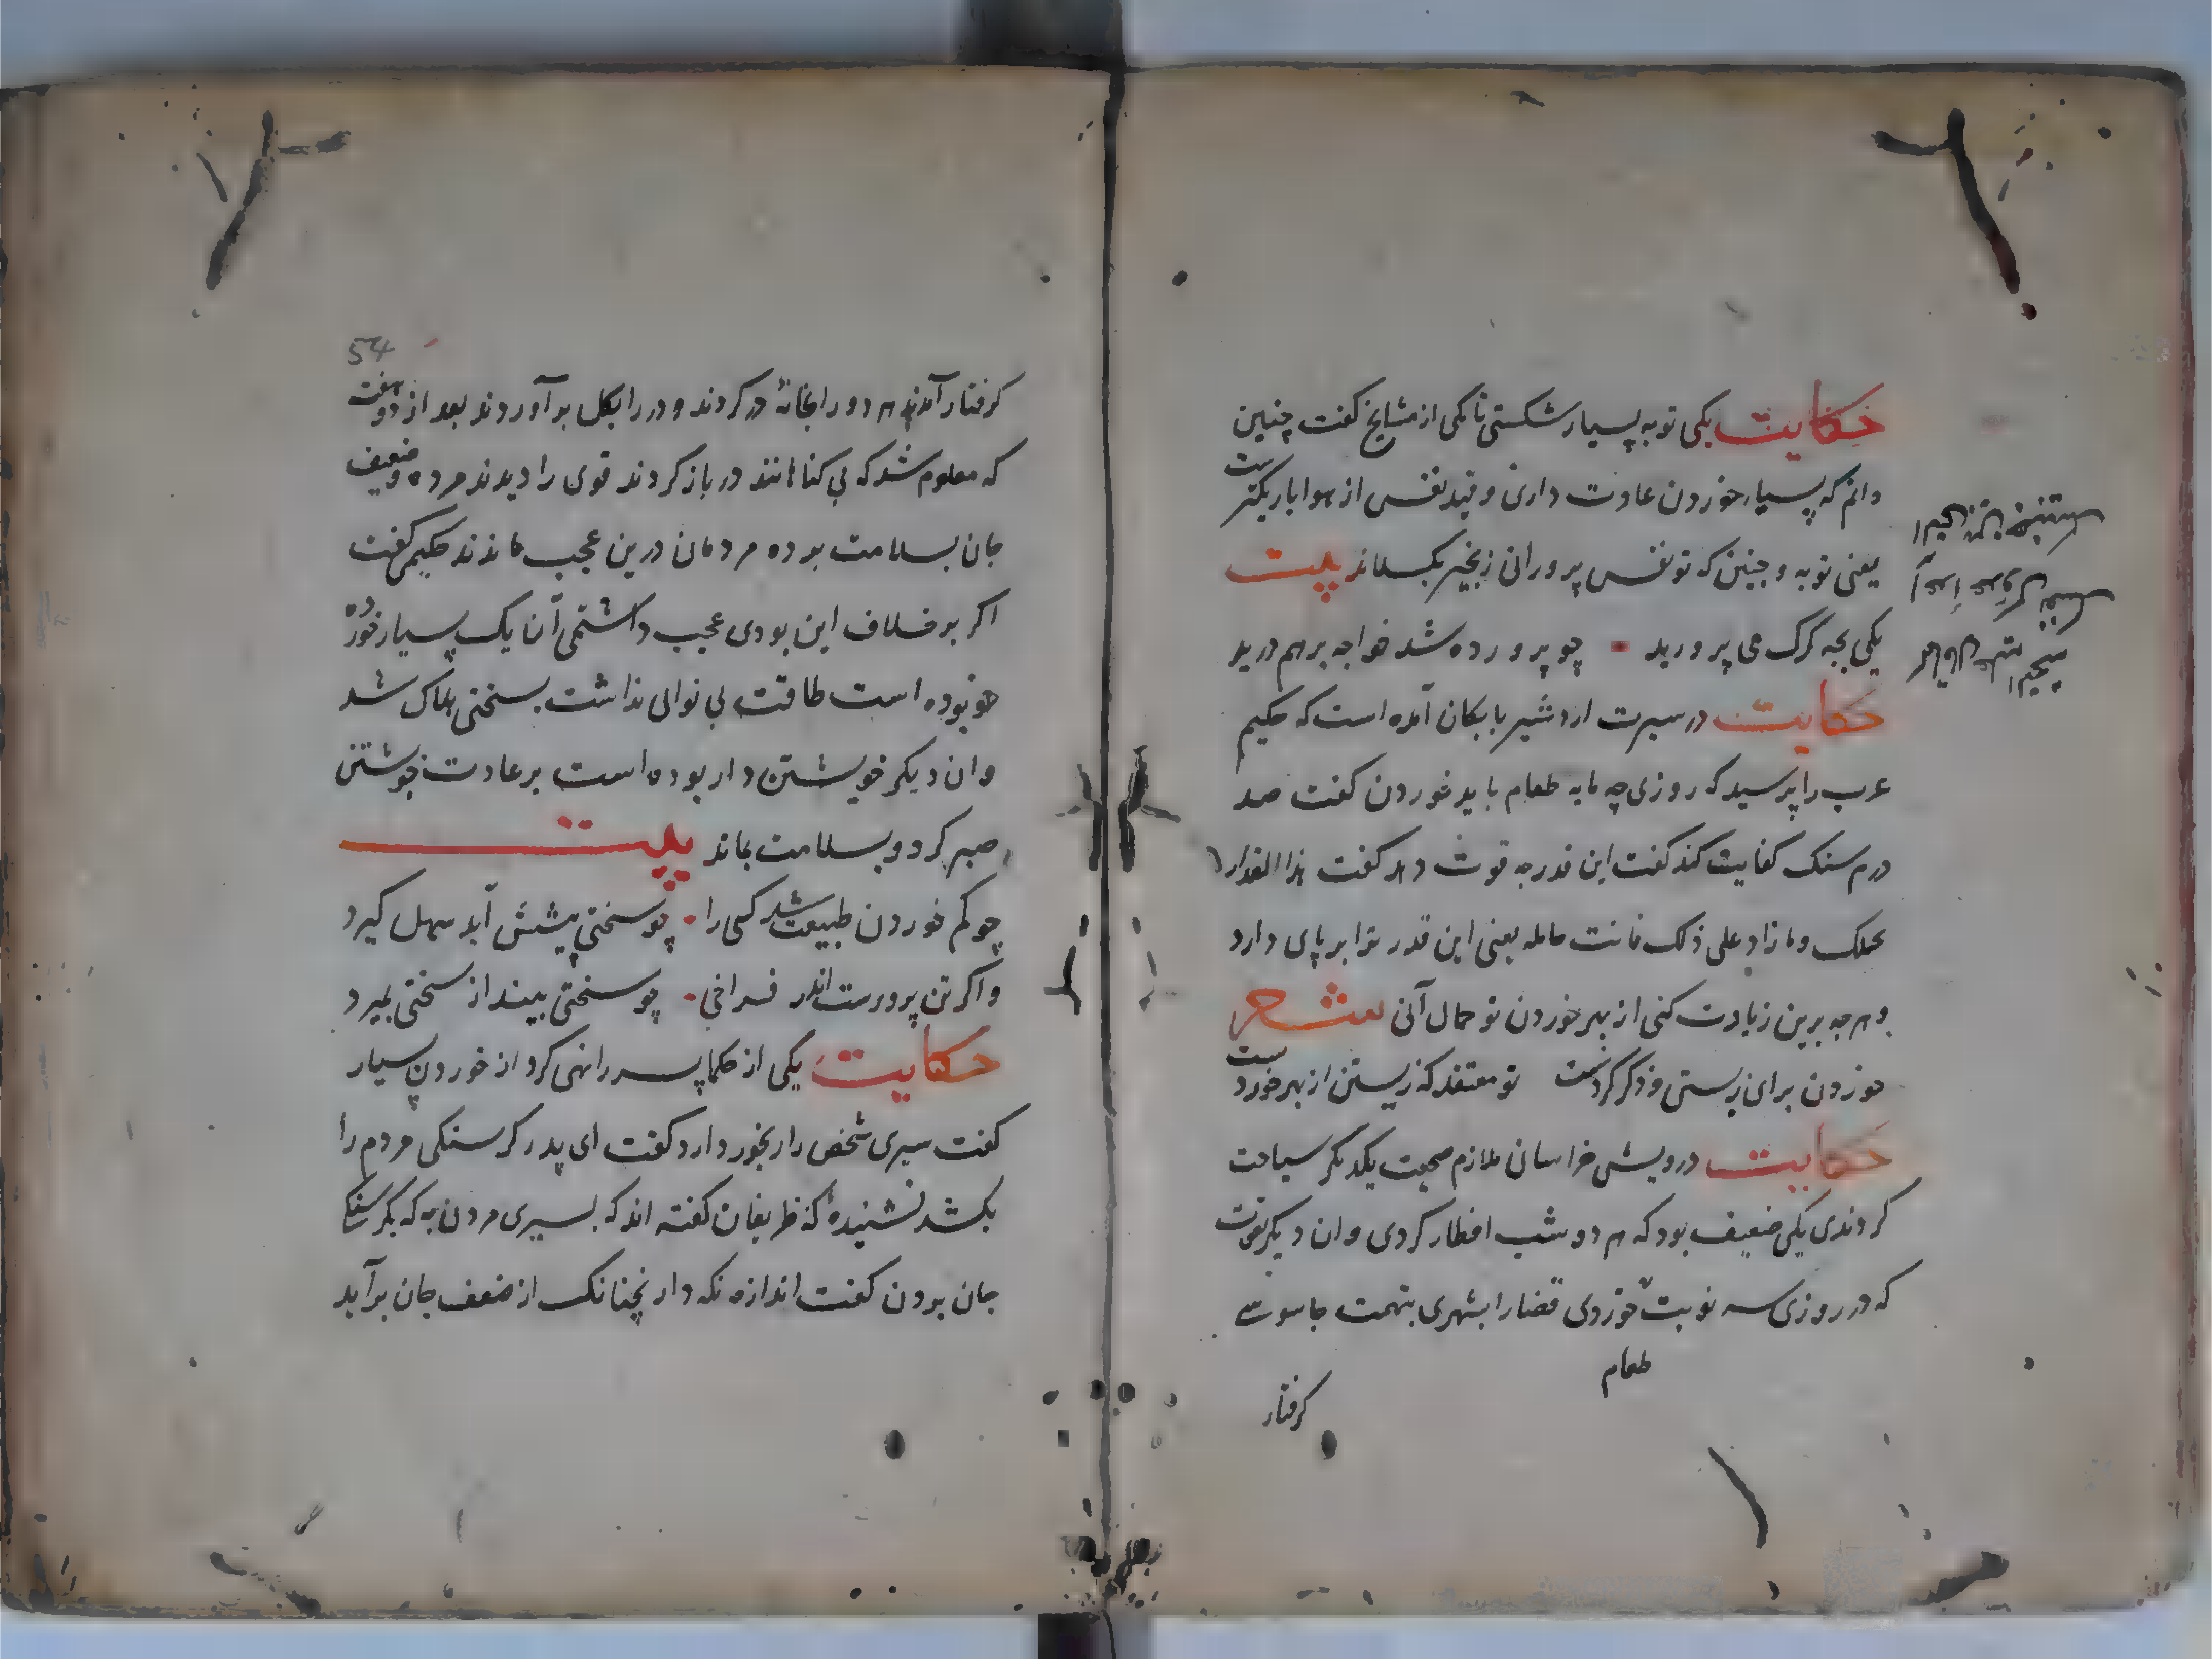 حکایت یکی توبه بسیار شکستی تا یکی از مشایخ گفت چنین
دانم که بسیار خوردن عادت داری و قید نفس از هوا باریکترست
یعنی توبه و چنین که تو نفس پرورانی زنجیر بکسلاند بیت
یکی بچه کرک می پرورید چو پرورده شد خواجه برهم درید
حکایت در سیرت اردشیر بابکان آمده است که حکیم
عرب را پرسید که روزی چه مایه طعام باید خوردن گفت صد
درم سنک کفایت کند گفت این قدر چه قوت دهد گفت هذا المقدار
یحملک و ما زاد علی ذلک فانت حامله یعنی این قدر ترا بر پای دارد
و هرچه برین زیادت کنی از بهر خوردن تو حمال آنی شعر
خوردن برای زیستن و ذکر کردنست تو معتقد که زیستن از بهر خوردنست
حکایت درویش خراسان ملازم صحبت یکدیگر سیاحت
کردندی یکی ضعیف بود که هر دو شب افطار کردی و ان دیکر قوت
که در روزی سه نوبت خوردی قضا را بشهری بتهمت جاسوسی
طعام
کرفتار
54
کرفتار آمدند هر دو را بخانهٔ در کردند و در را بکل برآوردند بعد از دو هفت
که معلوم شد که بی کناهانند در باز کردند قوی را دیدند مرده و ضعیف
جان بسلامت برده مردمان درین عجب ماندند حکیمی گفت
اکر بر خلاف این بودی عجب داشتمی آن یک بسیار خورده
خو بوده است طاقت بی نوایی نداشت بسختی هلاک شد
وان دیکر خویشتن دار بوده است بر عادت خویشتن
صبر کرد و بسلامت بماند بیت
چو کم خوردن طبیعت شد کسی را چو سختی پیشش آید سهل کیرد
و اکر تن پرورست اندر فراخی چو سختی بیند از سختی بمیرد
حکایت یکی از حکما پسر را نهی کرد از خوردن بسیار
گفت سیری شخص را رنجور دارد گفت ای پدر کرسنکی مردم را
بکشد نشنیدهٔ که ظریفان گفته اند که بسیری مردن به که بکرسنکی
جان بردن گفت اندازه نکه دار نچنانک از ضعف جان برآید